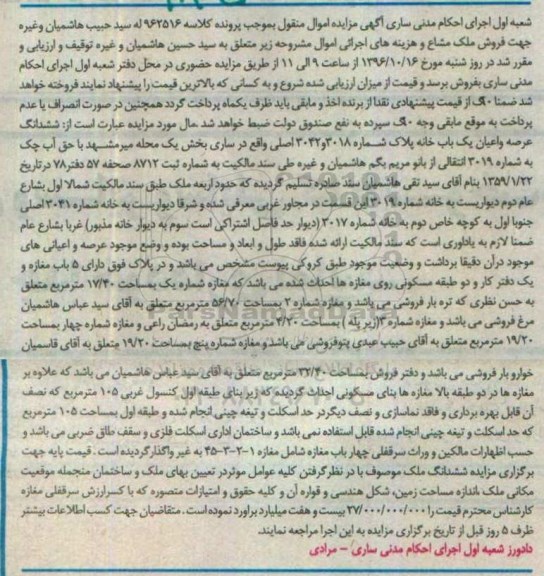 شعبه اول اجرای احکام مدنی ساری آگهی مزایده اموال منقول بموجب پرونده کلاسه ۹۶۲۵۱۶ له سید حبیب هاشمیان وغیره
جهت فروش ملک مشاع و هزینه های اجرائی اموال مشروحه زیر متعلق به سید حسین هاشمیان و غیره توقیف و ارزیابی و
مقرر شد در روز شنبه مورخ ۱۳۹۶/۱۰/۱۶ از ساعت ۹ الی ۱۱ از طریق مزایده حضوری در محل دفتر شعبه اول اجرای احکام
مدنی ساری بفروش برسد و قیمت از میزان ارزیابی شده شروع و به کسانی که بالاترین قیمت را پیشنهاد نمایند فروخته خواهد
شد ضمنا ۱۰٪ از قیمت پیشنهادی نقدا از برنده اخذ و مابقی باید ظرف یکماه پرداخت گردد همچنین در صورت انصراف یا عدم
پرداخت به موقع مابقی وجه ۱۰٪ سپرده به نفع صندوق دولت ضبط خواهد شد .مال مورد مزایده عبارت است از: ششدانگ
عرصه واعیان یک باب خانه پلاک شـماره ۳۰۱۸و۳۰۴۲ اصلی واقع در ساری بخش یک محله میرمشـهد با حق آب چک
به شماره ۳۰۱۹ انتقالی از بانو مریم بگم هاشمیان و غیره طی سند مالکیت به شماره ثبت ۸۷۱۲ صحفه ۵۷ دفتر۷۸ در تاریخ
۱۳۵۹/۱/۲۲ بنام آقای سید تقی هاشمیان سند صادره تسلیم گردیده که حدود اربعه ملک طبق سند مالکیت شمالا اول بشارع
عام دوم دیواریست به خانه شماره ۳۰۱۹ این قسمت در مجاور غربی معرفی شده و شرقا دیواریست به خانه شماره ۳۰۴۱ اصلی
جنوبا اول به کوچه خاص دوم به خانه شماره ۳۰۱۷ (دیوار حد فاصل اشتراکی است سوم به دیوار خانه مذبور) غربا بشارع عام
ضمنا لازم به یاداوری است که سند مالکیت ارائه شده فاقد طول و ابعاد و مساحت بوده و وضع موجود عرصه و اعیانی های
موجود درآن دقیقا برداشت و وضعیت موجود طبق کروکی پیوست مشخص می باشد و در پلاک فوق دارای ۵ باب مغازه و
یک دفتر کار و دو طبقه مسکونی روی مغازه ها احداث شده می باشد که مغازه شماره یک بمساحت ۱۷/۴۰ مترمربع متعلق
به حسن نظری که تره بار فروشی می باشد و مغازه شماره ۲ بمساحت ۵۶/۷۰ مترمربع متعلق به آقای سید عباس هاشمیان
مرغ فروشی می باشد و مغازه شماره ۳(زیر پله ) بمساحت ۴/۲۰ مترمربع متعلق به رمضان راعی و مغازه شماره چهار بمساحت
۱۹/۲۰ مترمربع متعلق به آقای حبیب عبدی پتوفروشی می باشد و مغازه شماره پنج بمساحت ۱۹/۲۰ متعلق به آقای قاسمیان
خوارو بار فروشی می باشد و دفتر فروش بمساحت ۳۲/۴۰ مترمربع متعلق به آقای سید عباس هاشمیان می باشد که علاوه بر
مغازه ها در دو طبقه بالا مغازه ها بنای مسکونی احداث گردیده که زیر بنای طبقه اول کنسول غربی ۱۰۵ مترمربع که نصف
آن قابل بهره برداری و فاقد نماسازی و نصف دیگر در حد اسکلت و تیغه چینی انجام شده و طبقه اول بمساحت ۱۰۵ مترمربع
که حد اسکلت و تیغه چینی انجام شده قابل استفاده نمی باشد و ساختمان اداری اسکلت فلزی و سقف طاق ضربی می باشد و
حسب اظهارات مالکین و وراث سرقفلی چهار باب مغازه شامل مغازه ۱-۲-۳-۴۵ به غیر واگذارگردیده است . قیمت پایه جهت
برگزاری مزایده ششدانگ ملک موصوف با در نظر گرفتن کلیه عوامل موثر در تعیین بهای ملک و ساختمان منجمله موقعیت
مکانی ملک ،اندازه مساحت زمین، شکل هندسی و قواره آن و کلیه حقوق و امتیازات متصوره که با کسر ارزش سرقفلی مغازه
کارشناس محترم قیمت را ۲۷/۰۰۰/۰۰۰/۰۰۰ بیست و هفت میلیارد براورد نموده است . متقاضیان جهت کسب اطلاعات بیشتر
ظرف ۵ روز قبل از تاریخ برگزاری مزایده به این اجرا مراجعه نمایند.
دادورز شعبه اول اجرای احکام مدنی ساری – مرادی
ParsNamadData